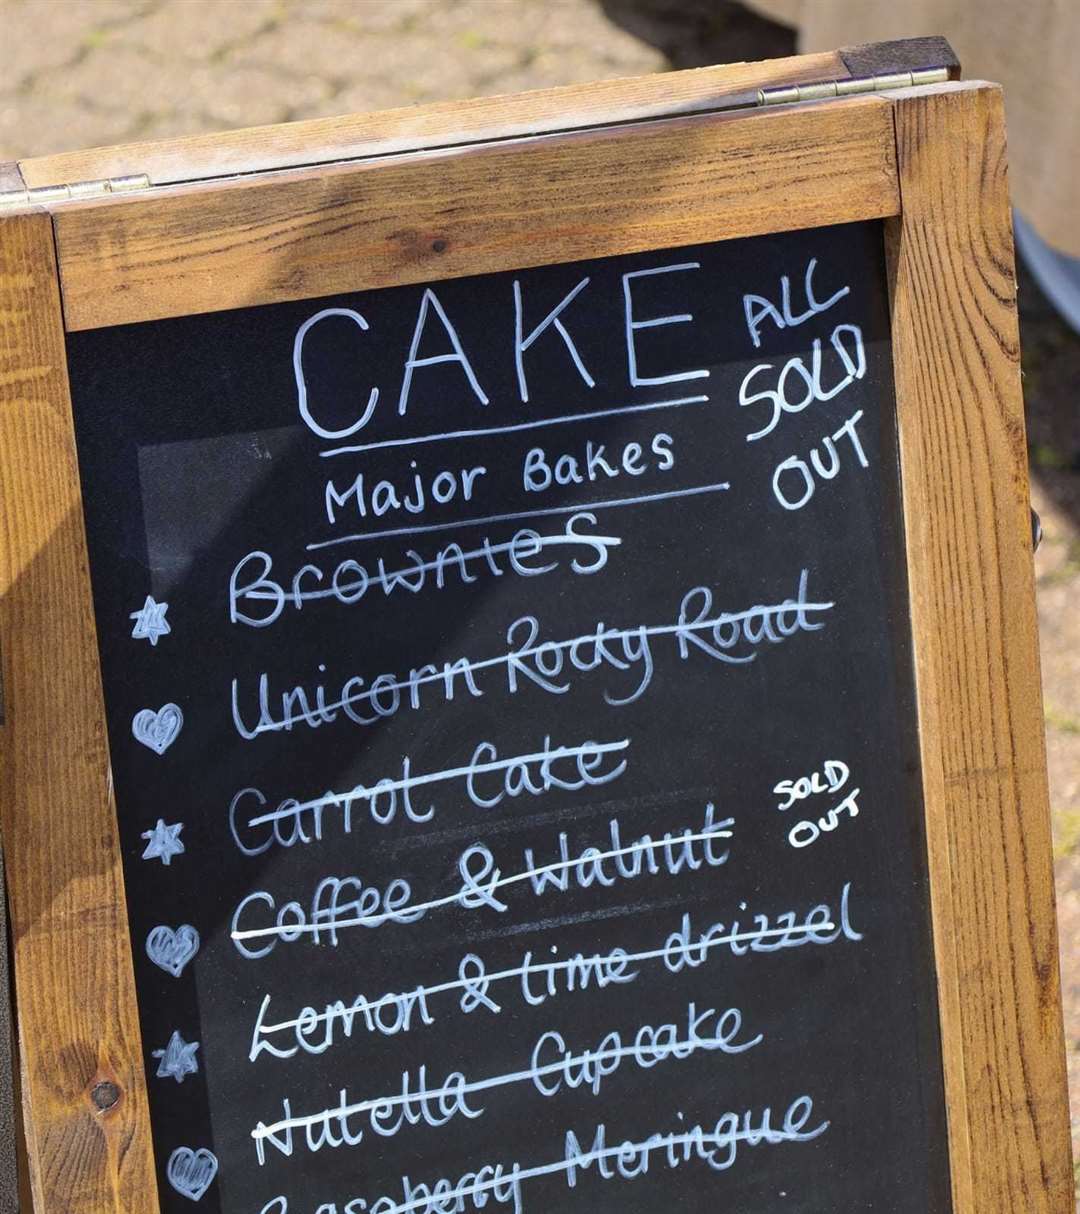 CAKE
ALL
SOLD
OUT
Major Bakes
Brownies
Unicorn Rocky Road
Carrot Cake
Coffee & Walnut
SOLD
OUT
Lemon & Lime drizzel
Nutella Cupcake
Raspberry Meringue